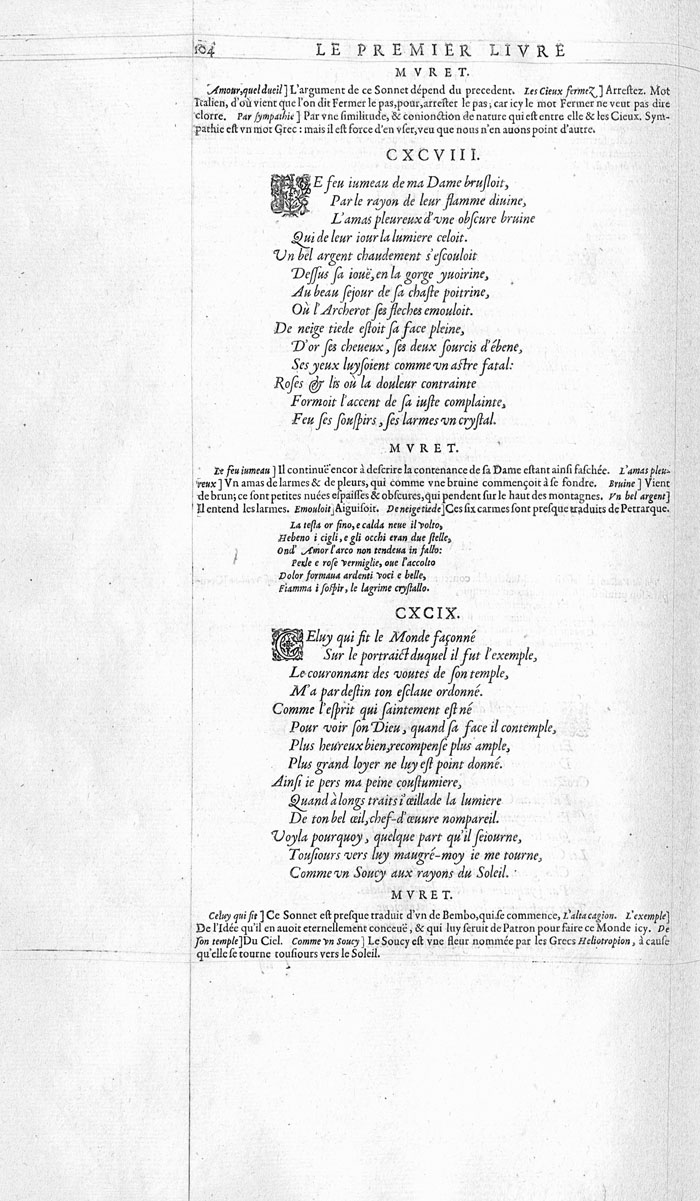 104 LE PREMIER LIVRE
MVRET.
Amour, quel dueil] L'argument de ce Sonnet dépend du precedent. Les Cieux fermez] Arrestez. Mot
Italien, d'où vient que l'on dit Fermer le pas, pour, arrester le pas; car icy le mot Fermer ne veut pas dire
clorre. Par sympathie] Par vne similitude, & conionction de nature qui est entre elle & les Cieux. Sym-
pathie est vn mot Grec : mais il est force d'en vser, veu que nous n'en auons point d'autre.
CXCVIII.
LE feu iumeau de ma Dame brusloit,
Par le rayon de leur flamme diuine,
L'amas pleureux d'vne obscure bruine
Qui de leur iour la lumiere celoit.
Vn bel argent chaudement s'escouloit
Dessus sa iouë, en la gorge yuoirine,
Au beau sejour de sa chaste poitrine,
Où l'Archerot ses fleches emouloit.
De neige tiede estoit sa face pleine,
D'or ses cheueux, ses deux sourcis d'ébene,
Ses yeux luysoient comme vn astre fatal:
Roses & lis où la douleur contrainte
Formoit l'accent de sa iuste complainte,
Feu ses souspirs, ses larmes vn crystal.
MVRET.
Le feu iumeau] Il continuë encor à descrire la contenance de sa Dame estant ainsi faschée. L'amas pleu-
reux] Vn amas de larmes & de pleurs, qui comme vne bruine commençoit à se fondre. Bruine] Vient
de brun; ce sont petites nuées espaisses & obscures, qui pendent sur le haut des montagnes. Vn bel argent]
Il entend les larmes. Emouloit] Aiguisoit. De neige tiede] Ces six carmes sont presque traduits de Petrarque.
La testa or fino, e calda neue il volto,
Hebeno i cigli, e gli occhi eran due stelle,
Ond' Amor l'arco non tendeua in fallo:
Perle e rose vermiglie, oue l'accolto
Dolor formaua ardenti voci e belle,
Fiamma i sospir, le lagrime crystallo.
CXCIX.
CEluy qui fit le Monde façonné
Sur le portraict duquel il fut l'exemple,
Le couronnant des voutes de son temple,
M'a par destin ton esclaue ordonné.
Comme l'esprit qui saintement est né
Pour voir son Dieu, quand sa face il contemple,
Plus heureux bien, recompense plus ample,
Plus grand loyer ne luy est point donné.
Ainsi ie pers ma peine coustumiere,
Quand à longs traits i'œillade la lumiere
De ton bel œil, chef-d'œuure nompareil.
Voyla pourquoy, quelque part qu'il seiourne,
Tousiours vers luy maugré-moy ie me tourne,
Comme vn Soucy aux rayons du Soleil.
MVRET.
Celuy qui fit] Ce Sonnet est presque traduit d'vn de Bembo, qui se commence, L'alta cagion. L'exemple]
De l'Idée qu'il en auoit eternellement conceuë, & qui luy seruit de Patron pour faire ce Monde icy. De
son temple] Du Ciel. Comme vn Soucy] Le Soucy est vne fleur nommée par les Grecs Heliotropion, à cause
qu'elle se tourne tousiours vers le Soleil.